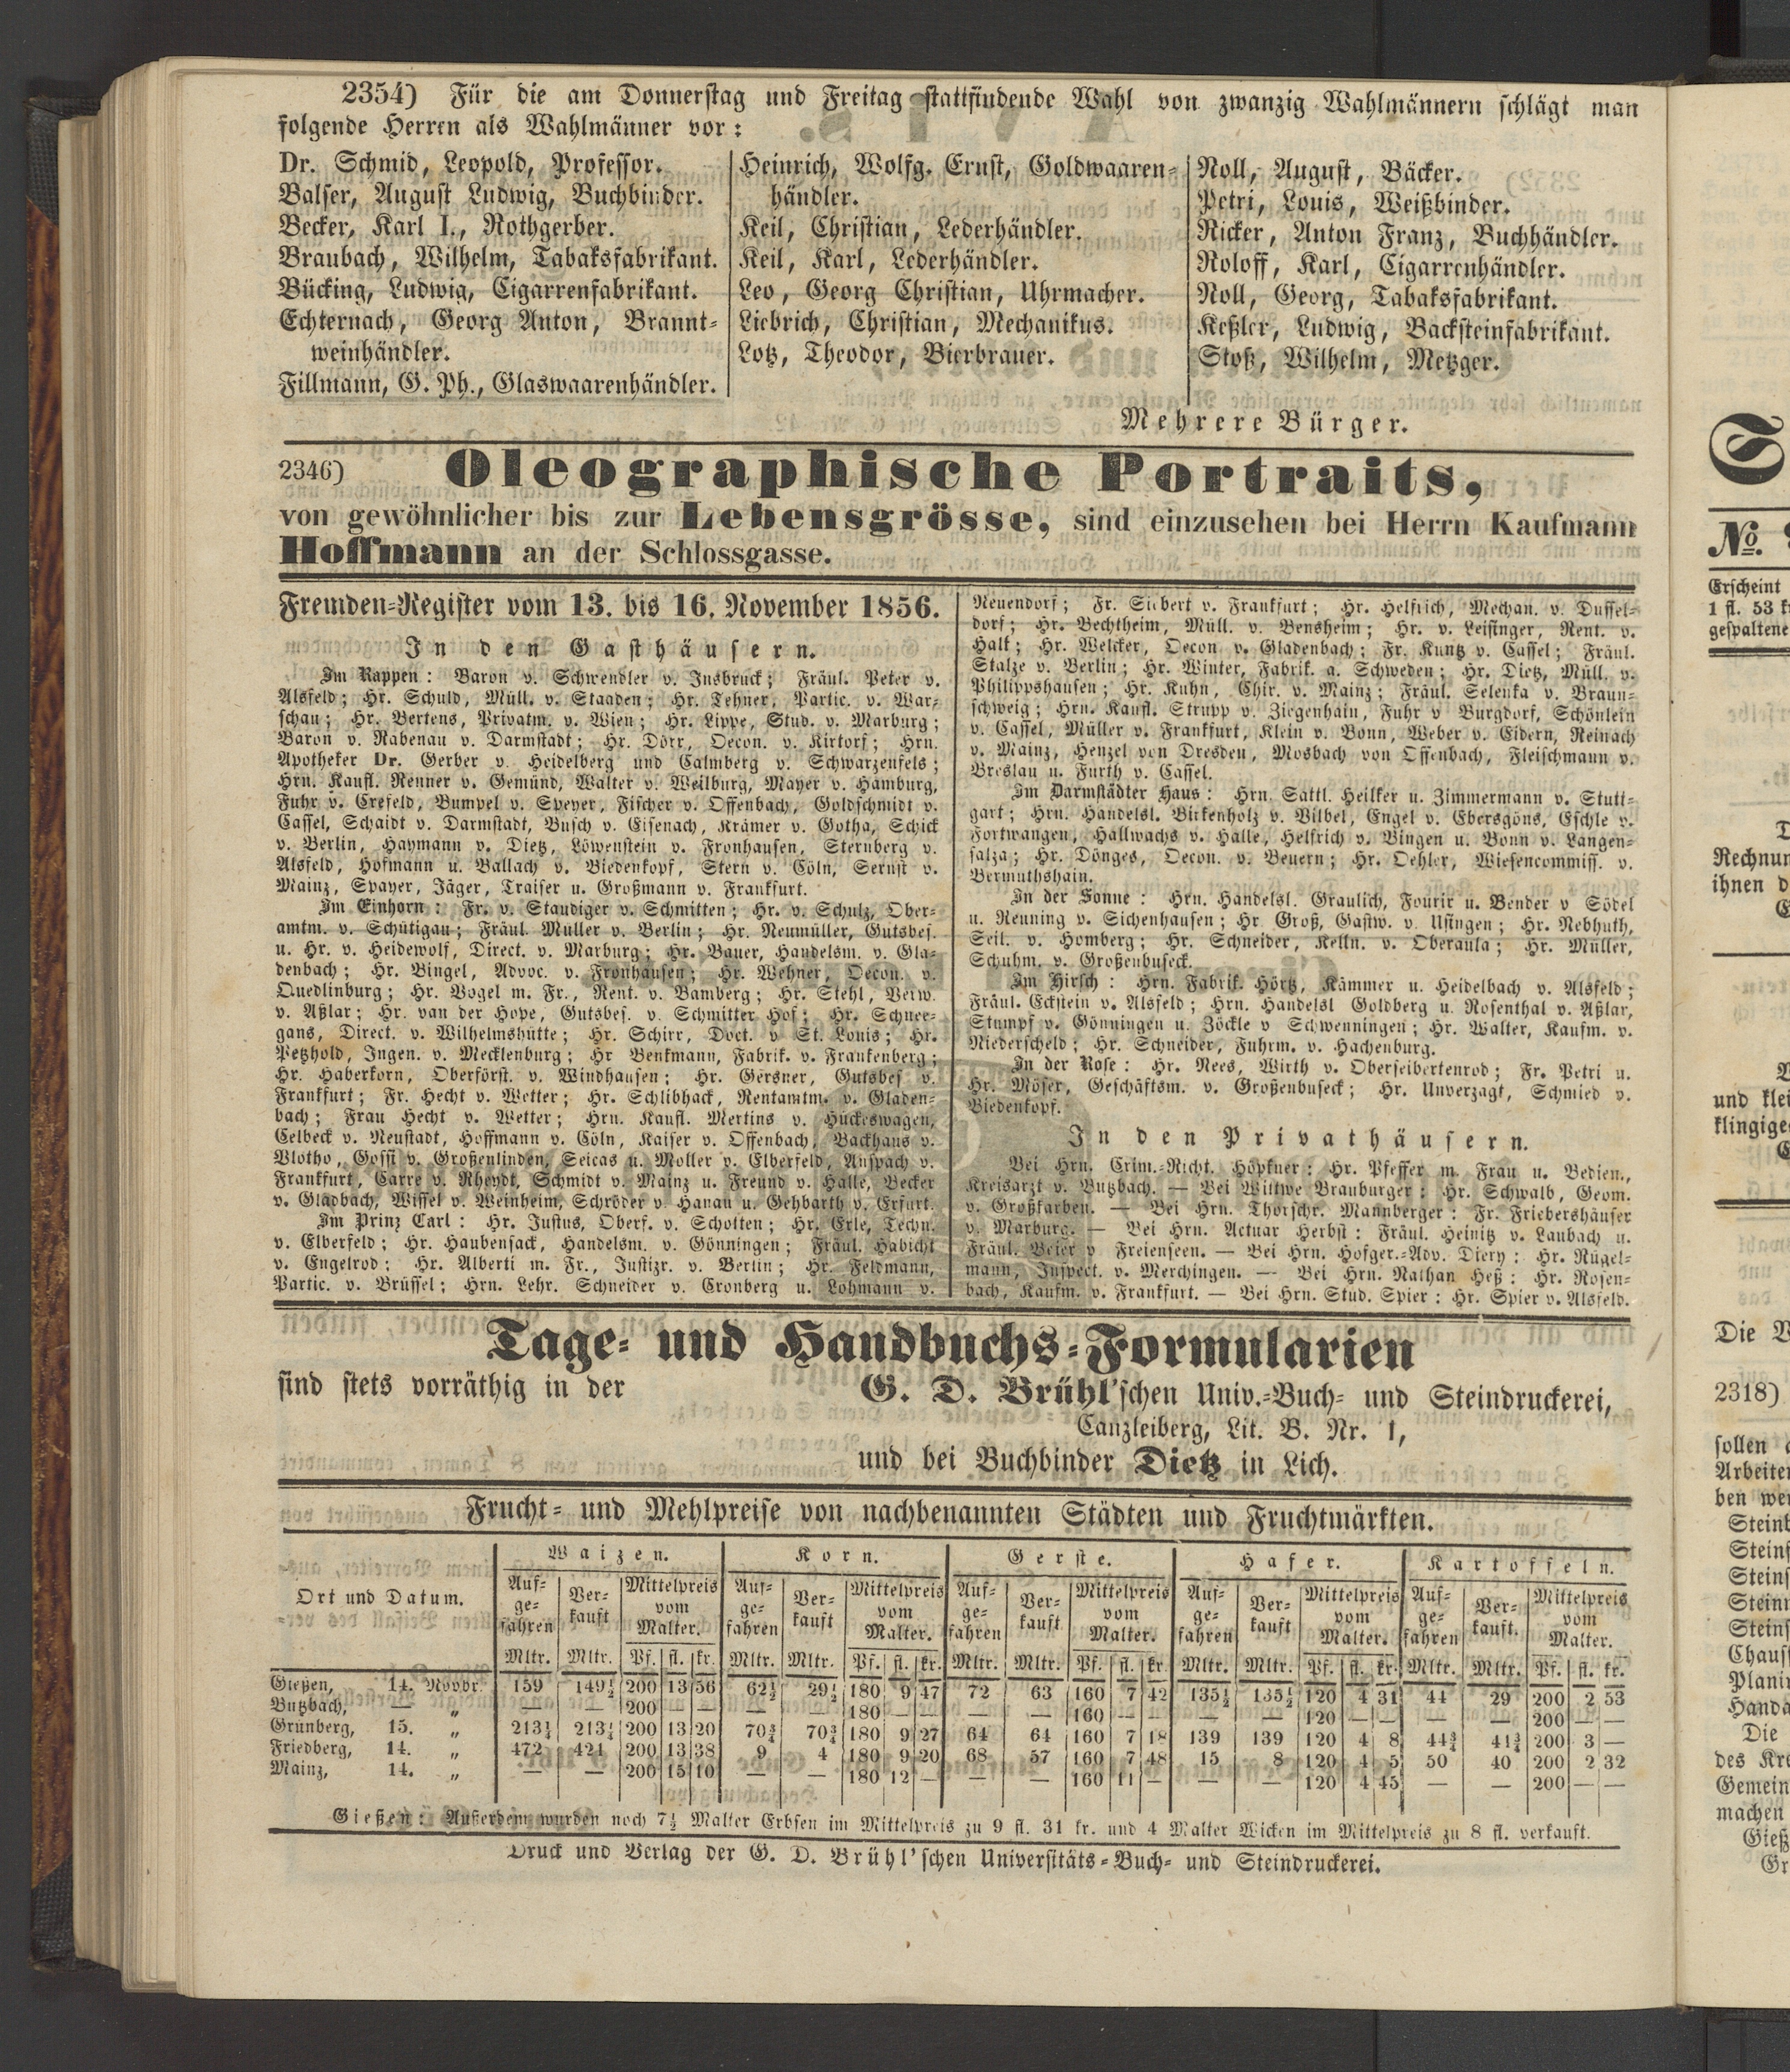 2354) Für die am Donnerstag und Freitag stattfindende Wahl von zwanzig Wahlmännern schlägt man
folgende Herren als Wahlmänner vor:
Dr. Schmid, Leopold, Professor.
Balser, August Ludwig, Buchbinder.
Becker, Karl I., Rothgerber.
Braubach, Wilhelm, Tabaksfabrikant.
Bücking, Ludwig, Cigarrenfabrikant.
Echternach, Georg Anton, Brannt-
weinhändler.
Fillmann, G. Ph., Glaswaarenhändler.
Heinrich, Wolfg. Ernst, Goldwaaren-
händler.
Keil, Christian, Lederhändler.
Keil, Karl, Lederhändler.
Leo, Georg Christian, Uhrmacher.
Liebrich, Christian, Mechanikus.
Lotz, Theodor, Bierbrauer.
Noll, August, Bäcker.
Petri, Louis, Weißbinder.
Ricker, Anton Franz, Buchhändler.
Roloff, Karl, Cigarrenhändler.
Noll, Georg, Tabaksfabrikant.
Keßler, Ludwig, Backsteinfabrikant.
Stoß, Wilhelm, Metzger.
Mehrere Bürger.
2346) Oleographische Portraits,
von gewöhnlicher bis zur Lebensgrösse, sind einzusehen bei Herrn Kaufmann
Hoffmann an der Schlossgasse.
Fremden-Register vom 13. bis 16. November 1856.
In den Gasthäusern.
Im Rappen: Baron v. Schwendler v. Insbruck; Fräul. Peter v.
Alsfeld; Hr. Schuld, Müll. v. Staaden; Hr. Tehner, Partic. v. War-
schau; Hr. Bertens, Privatm. v. Wien; Hr. Lippe, Stud. v. Marburg;
Baron v. Rabenau v. Darmstadt; Hr. Dörr, Oecon. v. Kirtorf; Hrn.
Apotheker Dr. Gerber v. Heidelberg und Calmberg v. Schwarzenfels;
Hrn. Kaufl. Renner v. Gemünd, Walter v. Weilburg, Mayer v. Hamburg,
Fuhr v. Crefeld, Bumpel v. Speyer, Fischer v. Offenbach, Goldschmidt v.
Cassel, Schaidt v. Darmstadt, Busch v. Eisenach, Krämer v. Gotha, Schick
v. Berlin, Haymann v. Dietz, Löwenstein v. Fronhausen, Sternberg v.
Alsfeld, Hofmann u. Ballach v. Biedenkopf, Stern v. Cöln, Sernst v.
Mainz, Spayer, Jäger, Traiser u. Großmann v. Frankfurt.
Im Einhorn: Fr. v. Staudiger v. Schmitten; Hr. v. Schulz, Ober-
amtm. v. Schütigau; Fräul. Müller v. Berlin; Hr. Neumüller, Gutsbes.
u. Hr. v. Heidewolf, Direct. v. Marburg; Hr. Bauer, Handelsm. v. Gla-
denbach; Hr. Bingel, Advoc. v. Fronhausen; Hr. Wehner, Oecon. v.
Quedlinburg; Hr. Vogel m. Fr., Rent. v. Bamberg; Hr. Stehl, Verw.
v. Aßlar; Hr. van der Hope, Gutsbes. v. Schmitter Hof; Hr. Schnee-
gans, Direct. v. Wilhelmshütte; Hr. Schirr, Doct. v St. Louis; Hr.
Petzhold, Ingen. v. Mecklenburg; Hr Benkmann, Fabrik. v. Frankenberg;
Hr. Haberkorn, Oberförst. v. Windhausen; Hr. Gersner, Gutsbes v.
Frankfurt; Fr. Hecht v. Wetter; Hr. Schlibhack, Rentamtm. v. Gladen-
bach; Frau Hecht v. Wetter; Hrn. Kaufl. Mertins v. Hückeswagen,
Celbeck v. Neustadt, Hoffmann v. Cöln, Kaiser v. Offenbach, Backhaus v.
Vlotho, Gossi v. Großenlinden, Seicas u. Moller v. Elberfeld, Anspach v.
Frankfurt, Carre v. Rheydt, Schmidt v. Mainz u. Freund v. Halle, Becker
v. Gladbach, Wissel v. Weinheim, Schröder v. Hanau u. Gehbarth v. Erfurt.
Im Prinz Carl: Hr. Justus, Oberf. v. Schotten; Hr. Erle, Techn.
v. Elberfeld; Hr. Haubensack, Handelsm. v. Gönningen; Fräul. Habicht
v. Engelrod; Hr. Alberti m. Fr., Justizr. v. Berlin; Hr. Feldmann,
Partic. v. Brüssel; Hrn. Lehr. Schneider v. Cronberg u. Lohmann v.
Neuendorf; Fr. Siebert v. Frankfurt; Hr. Helfrich, Mechan. v. Dussel-
dorf; Hr. Bechtheim, Müll. v. Bensheim; Hr. v. Leisinger, Rent. v.
Halk; Hr. Welcker, Oecon v. Gladenbach; Fr. Kuntz v. Cassel; Fräul.
Stalze v. Berlin; Hr. Winter, Fabrik. a. Schweden; Hr. Dietz, Müll. v.
Philippshausen; Hr. Kuhn, Chir. v. Mainz; Fräul. Selenka v. Braun-
schweig; Hrn. Kaufl. Strupp v. Ziegenhain, Fuhr v Burgdorf, Schönlein
v. Cassel, Müller v. Frankfurt, Klein v. Bonn, Weber v. Eidern, Reinach
v. Mainz, Henzel von Dresden, Mosbach von Offenbach, Fleischmann v.
Breslau u. Furth v. Cassel.
Im Darmstädter Haus: Hrn. Sattl. Heilker u. Zimmermann v. Stutt-
gart; Hrn. Handelsl. Birkenholz v. Vilbel, Engel v. Ebersgöns, Eschle v.
Fortwangen, Hallwachs v. Halle, Helfrich v. Bingen u. Bonn v. Langen-
salza; Hr. Dönges, Oecon. v. Beuern; Hr. Oehler, Wiesencommiss. v.
Bermuthshain.
In der Sonne: Hrn. Handelsl. Graulich, Fourir u. Bender v Södel
u. Renning v. Sichenhausen; Hr. Groß, Gastw. v. Usingen; Hr. Rebhuth,
Seil. v. Homberg; Hr. Schneider, Kelln. v. Oberaula; Hr. Müller,
Schuhm. v. Großenbuseck.
Im Hirsch: Hrn. Fabrik. Hörtz, Kämmer u. Heidelbach v. Alsfeld;
Fräul. Eckstein v. Alsfeld; Hrn. Handelsl Goldberg u. Rosenthal v. Aßlar,
Stumpf v. Gönningen u. Zöckle v Schwenningen; Hr. Walter, Kaufm. v.
Niederscheld; Hr. Schneider, Fuhrm. v. Hachenburg.
In der Rose: Hr. Nees, Wirth v. Oberseibertenrod; Fr. Petri u.
Hr. Möser, Geschäftsm. v. Großenbuseck; Hr. Unverzagt, Schmied v.
Biedenkopf.
In den Privathäusern.
Bei Hrn. Crim.-Richt. Höpfner: Hr. Pfeffer m. Frau u. Bedien.,
Kreisarzt v. Butzbach. — Bei Wittwe Brauburger: Hr. Schwalb, Geom.
v. Großkarben. — Bei Hrn. Thorschr. Mannberger: Fr. Friebershäuser
v. Marburg. — Bei Hrn. Actuar Herbst: Fräul. Heinitz v. Laubach u.
Fräul. Beier v Freienseen. — Bei Hrn. Hofger.-Adv. Diery: Hr. Rügel-
mann, Inspect. v. Merchingen. — Bei Hrn. Nathan Heß: Hr. Rosen-
bach, Kaufm. v. Frankfurt. — Bei Hrn. Stud. Spier: Hr. Spier v. Alsfeld.
Tage- und Handbuchs-Formularien
sind stets vorräthig in der G. D. Brühl'schen Univ.-Buch- und Steindruckerei,
Canzleiberg, Lit. B. Nr. 1,
und bei Buchbinder Dietz in Lich.
Frucht- und Mehlpreise von nachbenannten Städten und Fruchtmärkten.
Ort und Datum. Waizen. Korn. Gerste. Hafer. Kartoffeln.
Auf- ge- fahren Ver- kauft Mittelpreis vom Malter. Auf- ge- fahren Ver- kauft Mittelpreis vom Malter. Auf- ge- fahren Ver- kauft Mittelpreis vom Malter. Auf- ge- fahren Ver- kauft Mittelpreis vom Malter. Auf- ge- fahren Ver- kauft. Mittelpreis vom Malter.
Mltr. Mltr. Pf. fl. kr. Mltr. Mltr. Pf. fl. kr. Mltr. Mltr. Pf. fl. kr. Mltr. Mltr. Pf. fl. kr. Mltr. Mltr. Pf. fl. kr.
Gießen, 14. Novbr. 159 149½ 200 13 56 62½ 29½ 180 9 47 72 63 160 7 42 135½ 135½ 120 4 31 44 29 200 2 53
Butzbach, — „ — — 200 — — — — 180 — — — — 160 — — — — 120 — — — — 200 — —
Grünberg, 15. „ 213¼ 213¼ 200 13 20 70¾ 70¾ 180 9 27 64 64 160 7 18 139 139 120 4 8 44¾ 41¾ 200 3 —
Friedberg, 14. „ 472 421 200 13 38 9 4 180 9 20 68 57 160 7 48 15 8 120 4 5 50 40 200 2 32
Mainz, 14. „ — — 200 15 10 — — 180 12 — — — 160 11 — — — 120 4 45 — — 200 — —
Gießen: Außerdem wurden noch 7½ Malter Erbsen im Mittelpreis zu 9 fl. 31 kr. und 4 Malter Wicken im Mittelpreis zu 8 fl. verkauft.
Druck und Verlag der G. D. Brühl'schen Universitäts-Buch- und Steindruckerei.
№.
Erscheint
1 fl. 53
gespaltene
Rechnun
ihnen
und
klingige
Die
2318)
sollen
Arbeiten
ben
Stein
Stein
Planir
Handa
Die
des
Gemein
machen